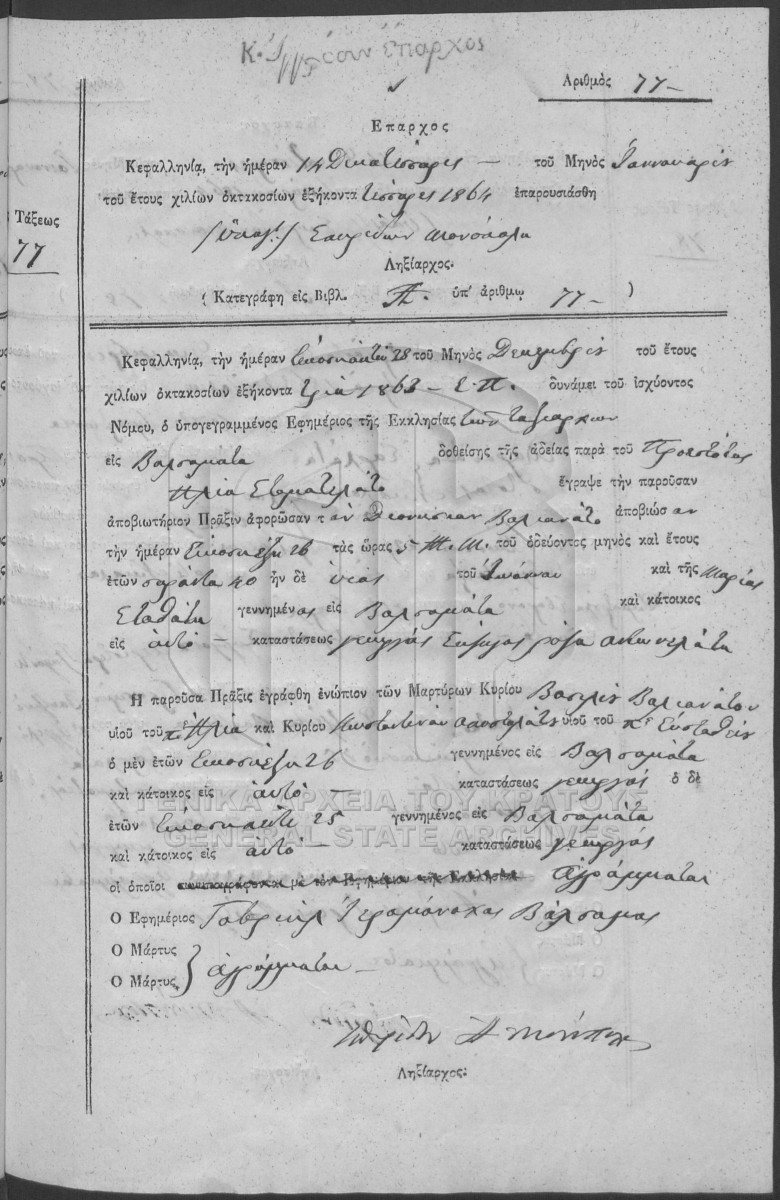 έπαρχος
Αριθμὸς 77
Επαρχος
Κεφαλληνίᾳ, τὴν ἡμέραν 14 Δεκατέσσαρες — τοῦ Μηνὸς Ἰαννουαρίου
τοῦ ἔτους χιλίων ὀκτακοσίων ἑξήκοντα τέσσαρες 1864 ἐπαρουσιάσθη
Τάξεως
77
Σπυρίδων
Ληξίαρχος.
( Κατεγράφη εἰς Βιβλ. Α. ὑπ' ἀριθμῳ 77 — )
Κεφαλληνίᾳ, τὴν ἡμέραν εἰκοσιοκτώ 28 τοῦ Μηνὸς Δεκεμβρίου τοῦ ἔτους
χιλίων ὀκτακοσίων ἑξήκοντα τρία 1863 — Ε. Π. δυνάμει τοῦ ἰσχύοντος
Νόμου, ὁ ὑπογεγραμμένος Ἐφημέριος τῆς Εκκλησίας των Ταξιαρχων
εἰς Βαλσαματα δοθείσης τῆς ἀδείας παρὰ τοῦ Προεστῶτος
Ηλία Σταματελάτο ἔγραψε τὴν παροῦσαν
ἀποβιωτήριον Πρᾶξιν ἀφορῶσαν τ ὸν Διονυσιον Βαλιανάτο ἀποβιώσ αν
τὴν ἡμέραν Εικοσιέξη 26 τὰς ὥρας 5 Π. Μ. τοῦ ὁδεύοντος μηνὸς καὶ ἔτους
ἐτῶν σαράντα 40 ἦν δὲ ὑιὸς τοῦ Ἰωάννου καὶ τῆς Μαρίας
Σταθάτου γεννημένος εἰς Βαλσαμάτα καὶ κάτοικος
εἰς αὐτό — καταστάσεως γεωργός Σύζυγος ρόζα αντωνελάτα
Η παροῦσα Πρᾶξις ἐγράφθη ἐνώπιον τῶν Μαρτύρων Κυρίου Βασιλίου Βαλιανάτου
υἱοῦ τοῦ Ηλία καὶ Κυρίου Κωσταντίνου υἱοῦ τοῦ Εὐσταθίου
ὁ μὲν ἐτῶν Εικοσιέξη 26 γεννημένος εἰς Βαλσαμάτα
καὶ κάτοικος εἰς αὐτό — καταστάσεως γεωργός ὁ δὲ
ἐτῶν Εικοσιπέντε 25 γεννημένος εἰς Βαλσαμάτα
καὶ κάτοικος εἰς αὐτό — καταστάσεως γεωργός
οἱ ὁποῖοι Ἀγράμματοι
Ο Ἐφημέριος Γαβριήλ Ἱερομόναχος Βάλσαμος
Ο Μάρτυς
Ο Μάρτυς } ἀγράμματοι —
Ληξίαρχος:
ΓΕΝΙΚΑ ΑΡΧΕΙΑ ΤΟΥ ΚΡΑΤΟΥΣ
GENERAL STATE ARCHIVES